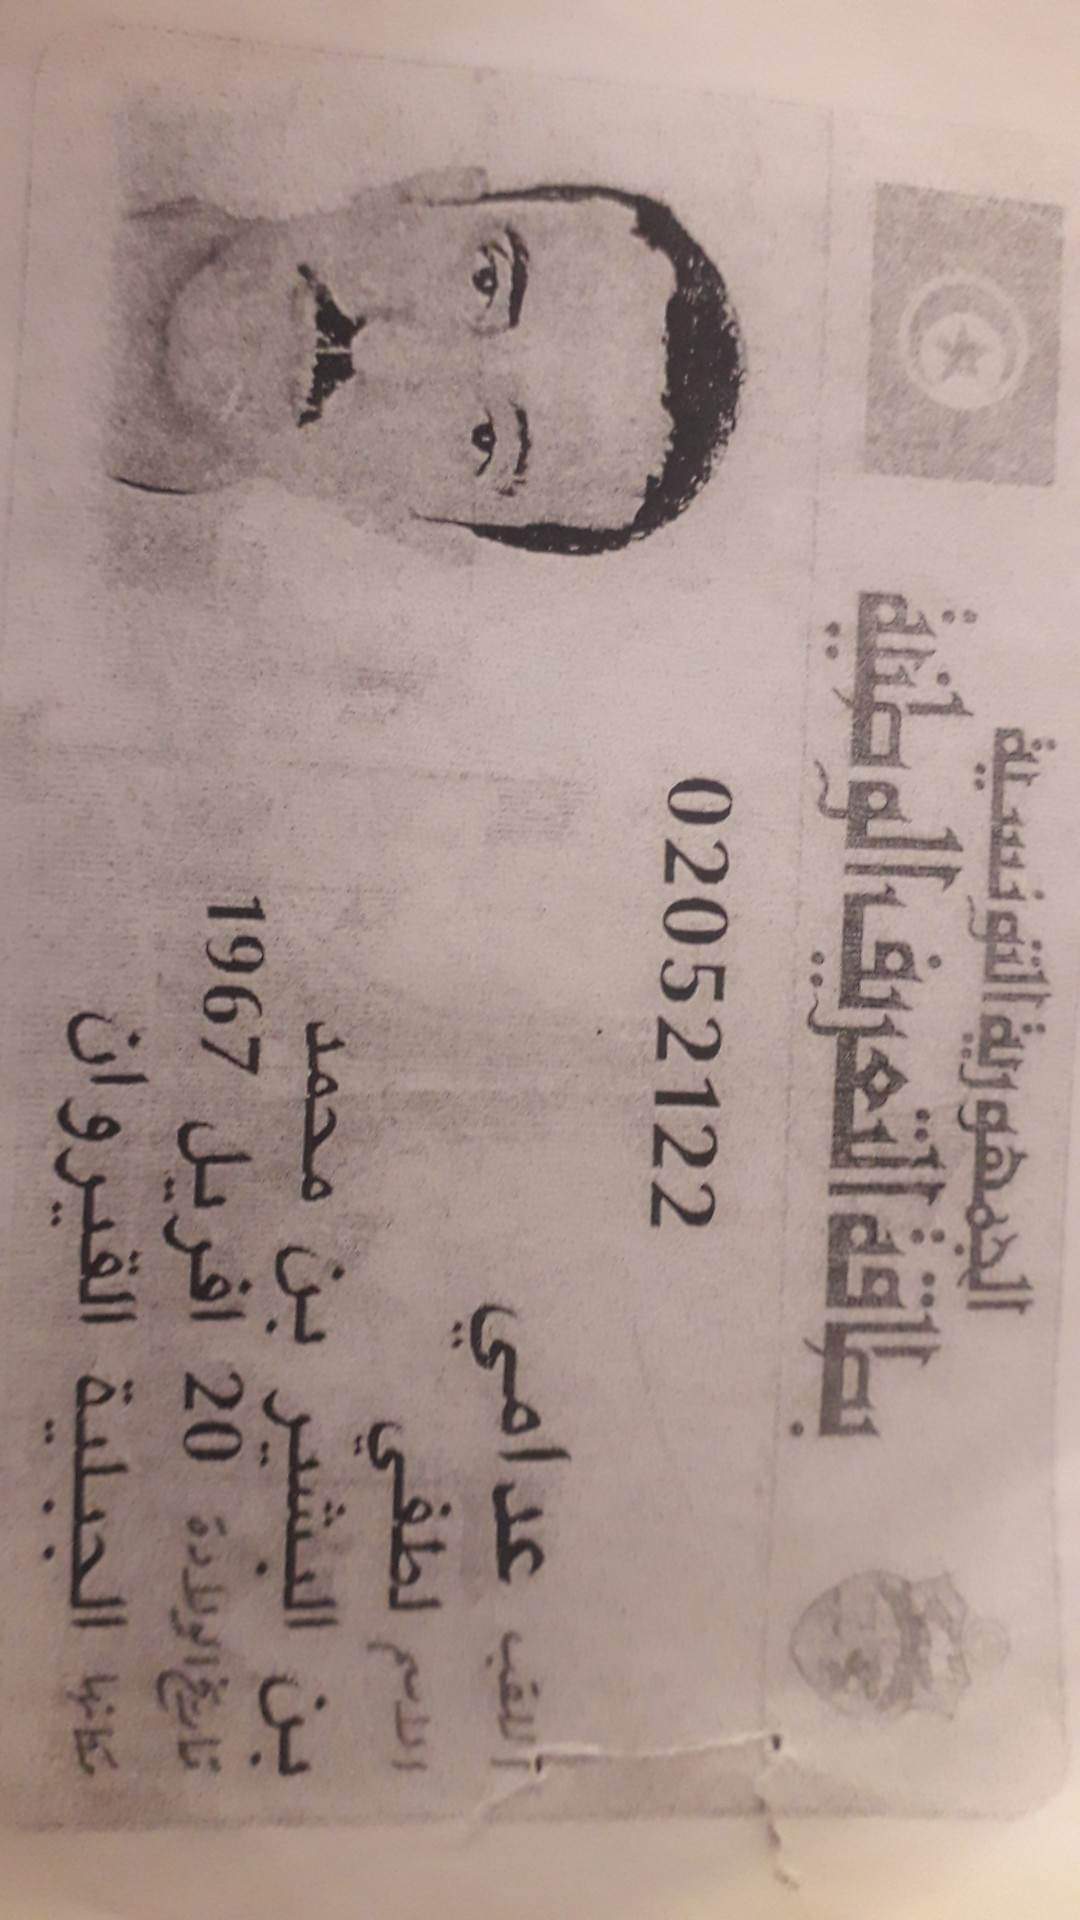 الجمهورية التونسية
بطاقة التعريف الوطنية
02052122
اللقب عدامي
الاسم لطفي
بن البشير بن محمد
تاريخ الولادة 20 افريل 1967
مكانها الجبلية القيروان